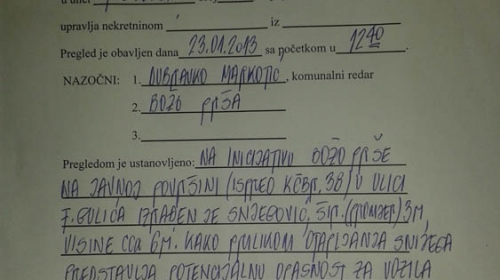 upravlja nekretninom iz
Pregled je obavljen dana 23.01.2013 sa početkom u 12 40.
NAZOČNI: 1. DUBRAVKO MARKOTIĆ, komunalni redar
2. BOŽO PRŠA
3.
Pregledom je ustanovljeno: NA INICIJATIVU BOŽO PRŠE
NA JAVNOJ POVRŠINI (ISPRED KČBR. 38) U ULICI
F. GULIĆA IZRAĐEN JE SNJEGOVIĆ, ŠIR. (PROMJER) 3M,
VISINE CCA 6M. KAKO PRILIKOM OTAPLJANJA SNIJEGA
PREDSTAVLJA POTENCIJALNU OPASNOST ZA VOZILA